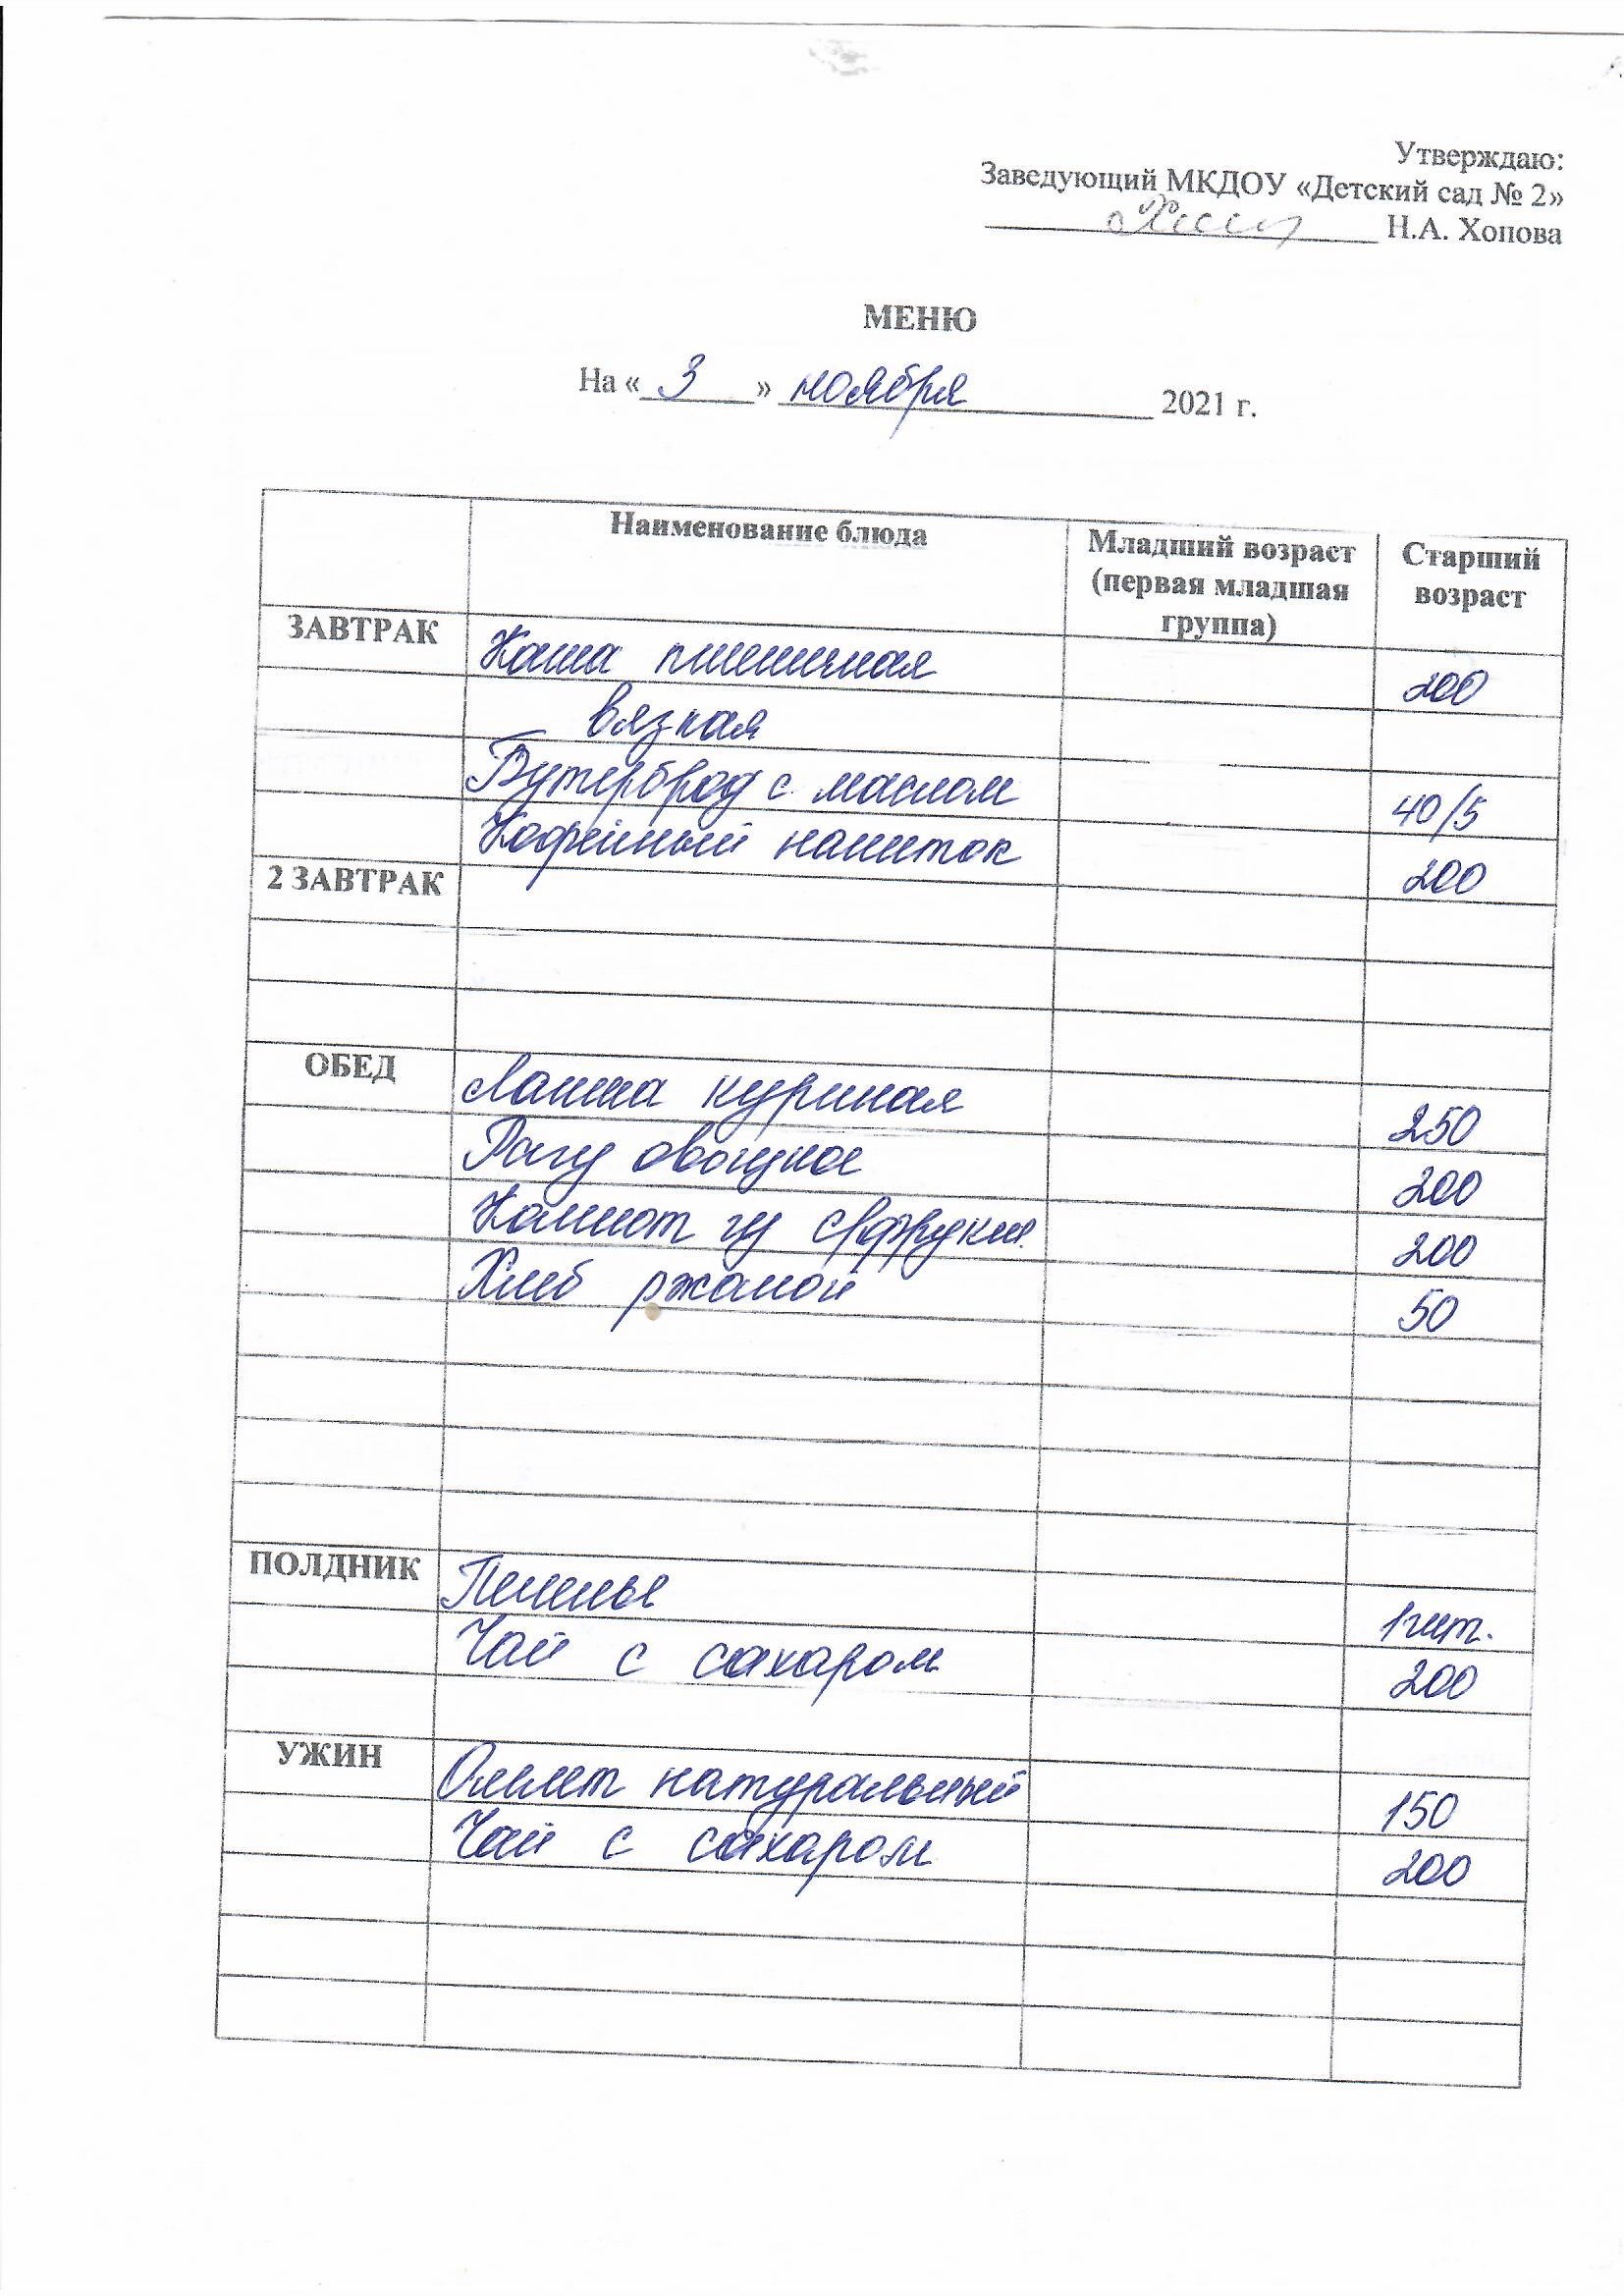 Утверждаю:
Заведующий МКДОУ «Детский сад № 2»
Н.А. Хопова
МЕНЮ
На « 3 » ноября 2021 г.
Наименование блюда
Младший возраст
(первая младшая
группа)
Старший
возраст
ЗАВТРАК Каша пшенная 200
вязкая
Бутерброд с маслом 40/5
Кофейный напиток 200
2 ЗАВТРАК
ОБЕД Лапша куриная 250
Рагу овощное 200
Компот из с/фрукт. 200
Хлеб ржаной 50
ПОЛДНИК Печенье 1 шт.
Чай с сахаром 200
УЖИН Омлет натуральный 150
Чай с сахаром 200